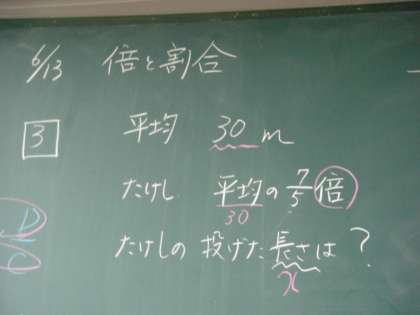 6/13 倍と割合
3 平均 30m
たけし 平均の7/5倍
30
たけしの投げた長さは?
x
D
C